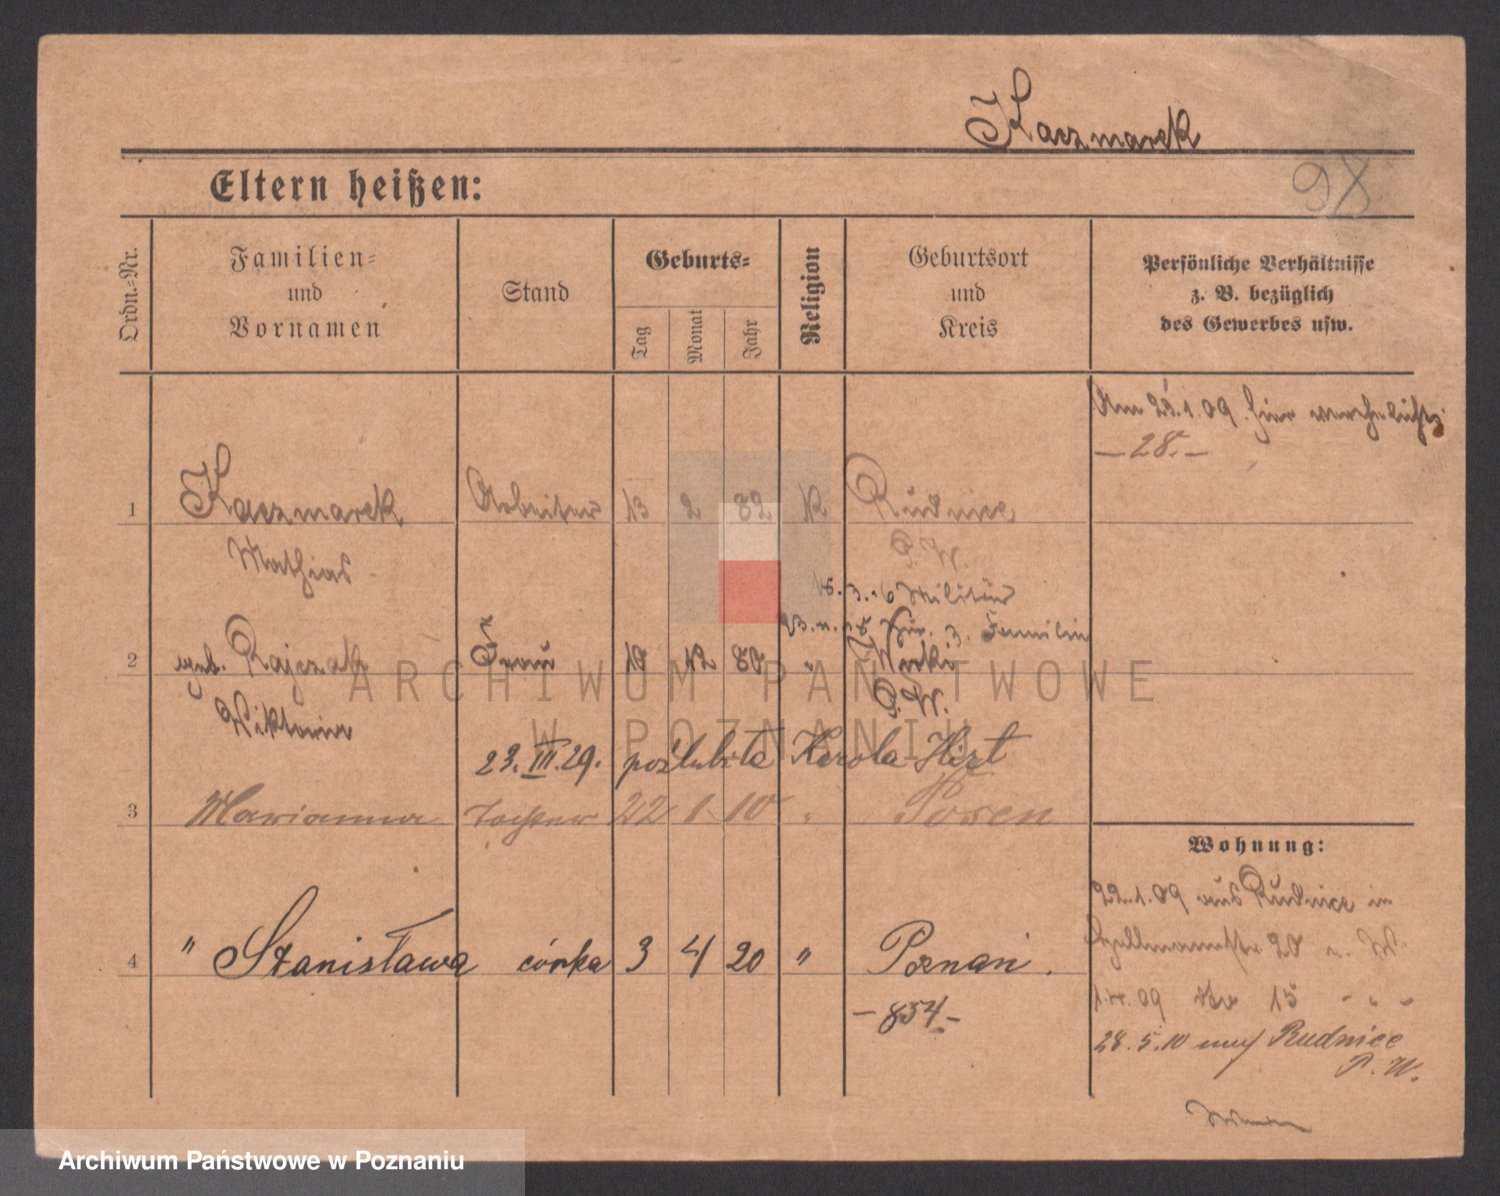 Kaczmarek
98
Eltern heißen:
Ordn.-Nr.
Familien-
und
Vornamen
Stand
Geburts-
Tag
Monat
Jahr
Religion
Geburtsort
und
Kreis
Persönliche Verhältnisse
z. B. bezüglich
des Gewerbes usw.
Am 22.1.09 hier verehelicht
— 28. —
1 Kaczmarek Arbeiter 13 2 82 K Rudnice
Mathias P.W.
18.3.16 Militär
zur. z. Familie
2 geb. Rajczak Frau 19 12 80 " Wirki
Wiktoria P.W.
23.III.29. poślubiła Karola Hirt
3 Marianna Tochter 22 1 10 " Posen
4 " Stanisława córka 3 4 20 " Poznań.
— 854. —
Wohnung:
22.1.09 aus Rudnice in
20
1.4.09 15 " " "
28.5.10 nach Rudnice
P.W.
ARCHIWUM PAŃSTWOWE
W POZNANIU
Archiwum Państwowe w Poznaniu